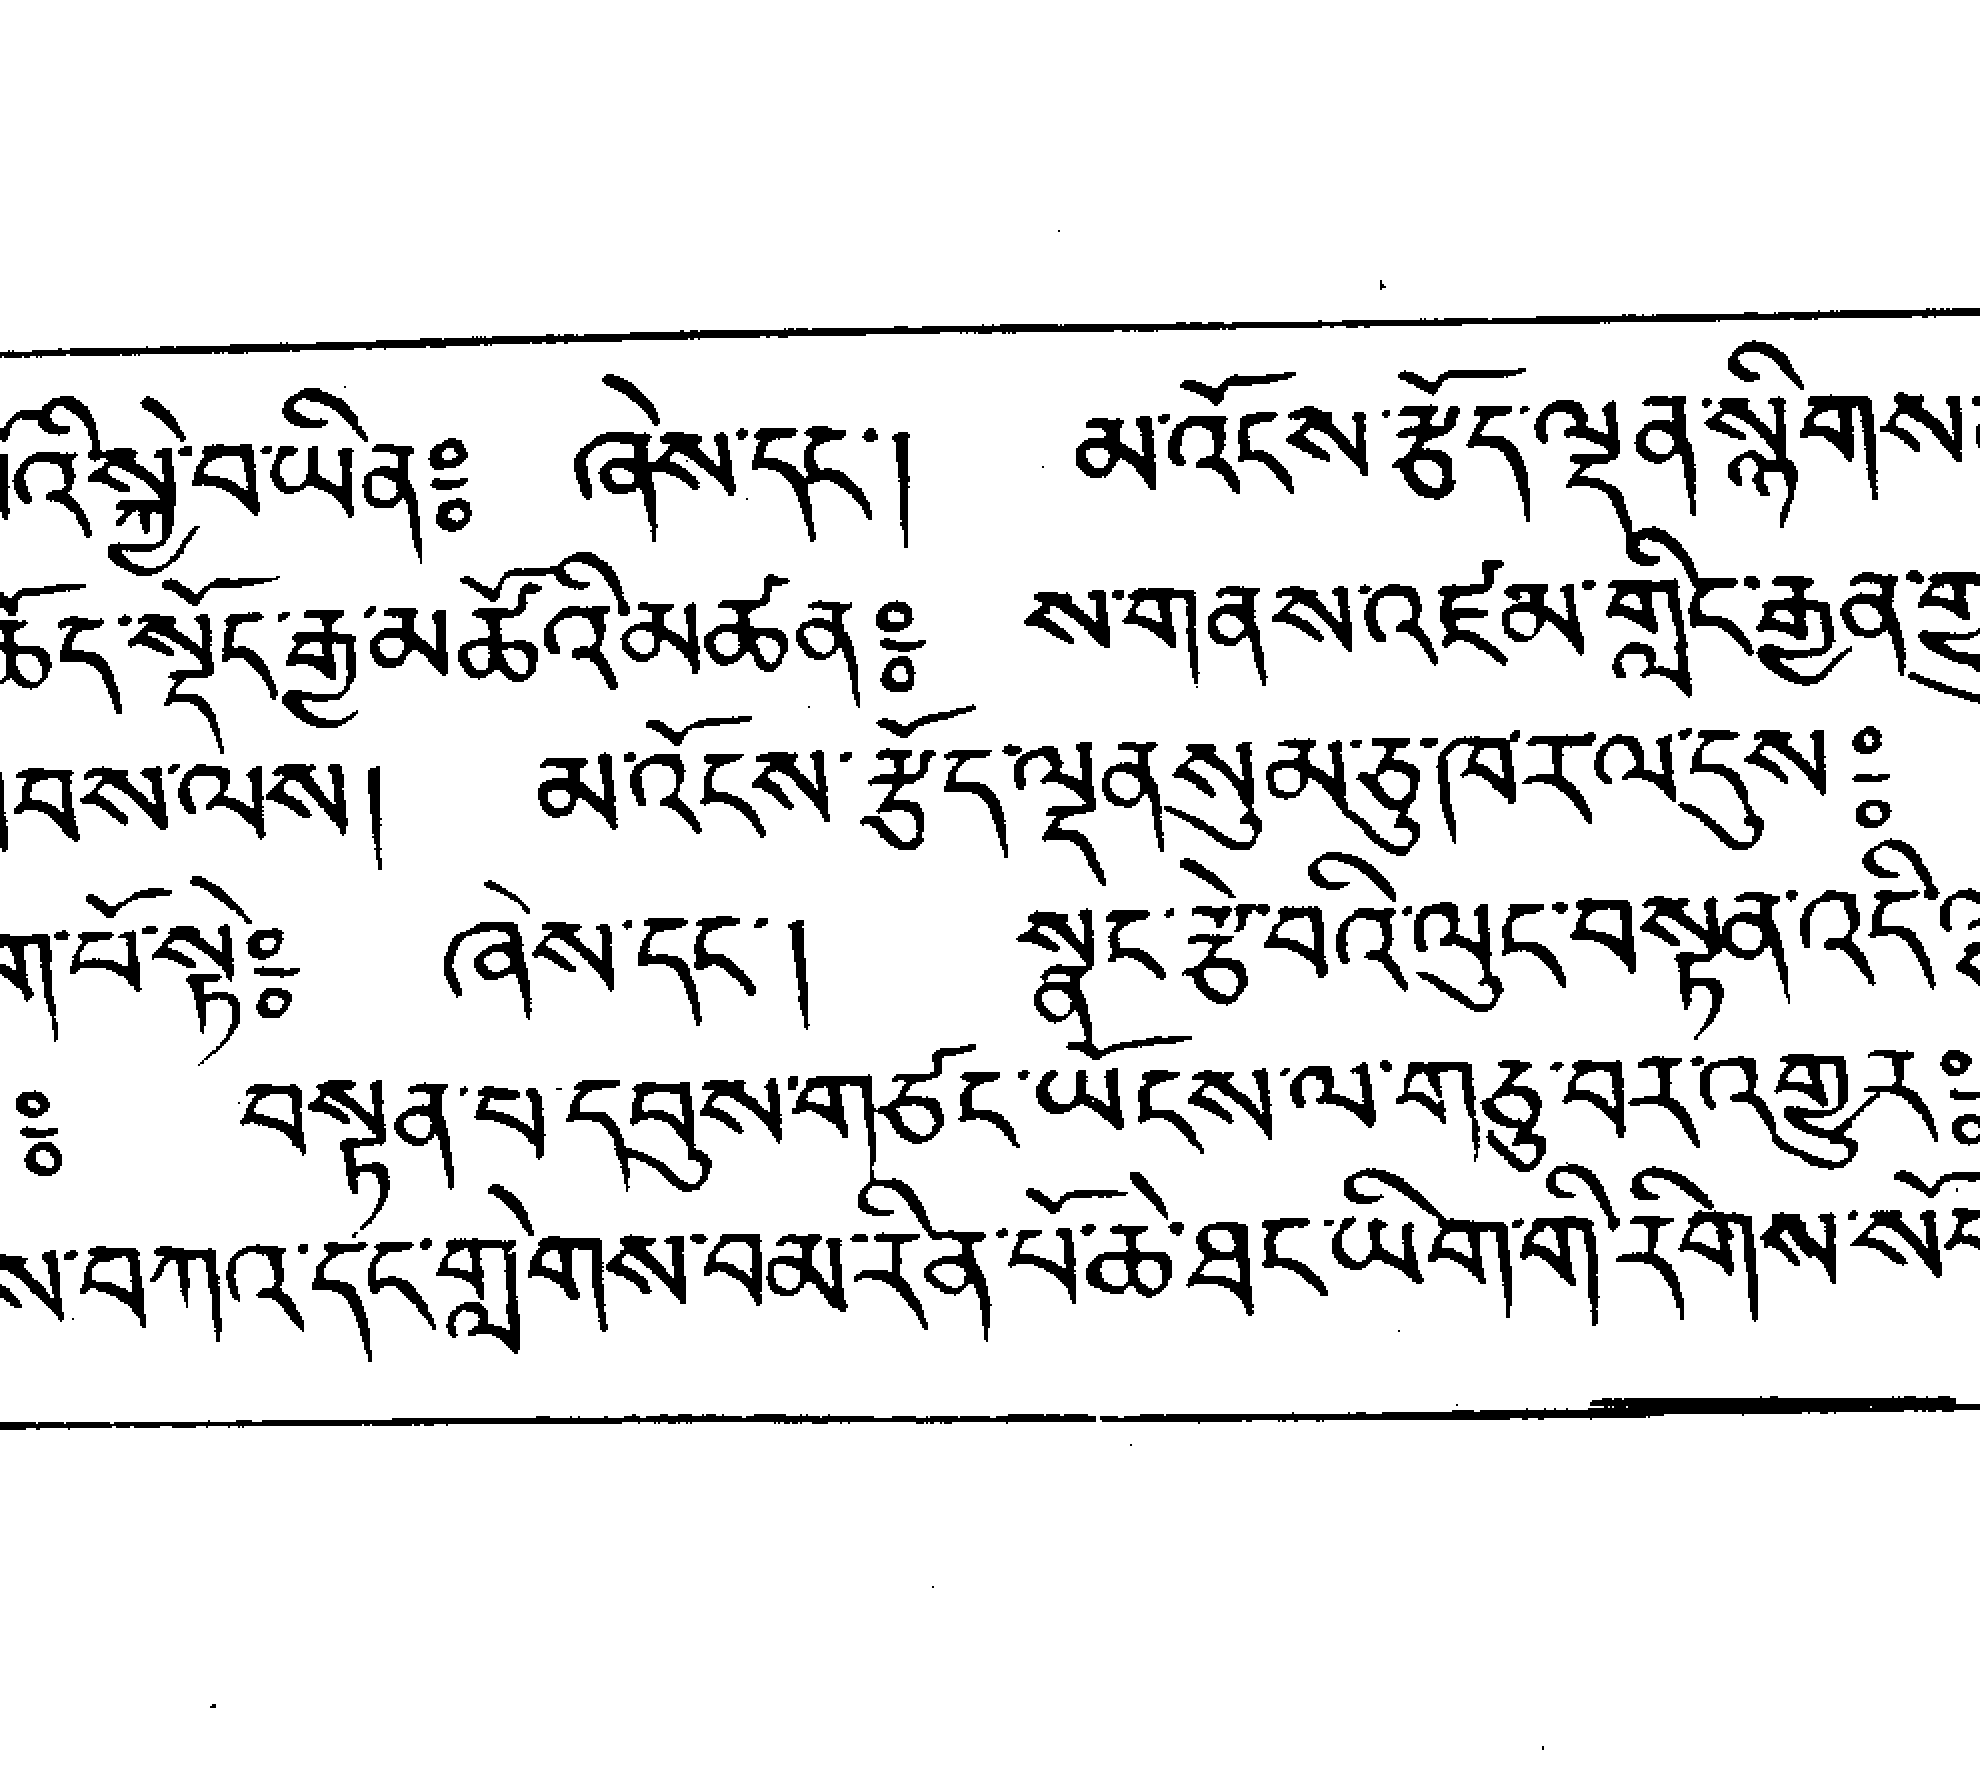 འི་སྐྱེ་བ་ཡིན༔ ཞེས་དང་། མ་འོངས་རྩོད་ལྡན་སྙིགས་
ཚོད་སྡོང་རྒྱ་མཚོའི་མཚན༔ ས་གནས་འཛམ་གླིང་རྒྱན་
བས་ལས། མ་འོངས་རྩོད་ལྡན་སུམ་ཅུ་ཁ་རལ་དུས༔
ག་པོ་སྟེ༔ ཞེས་དང་། སྣང་རྩེ་བའི་ལུང་བསྟན་འདི་
༔ བསྟན་པ་དབུས་གཙང་ཡོངས་ལ་གཅུ་བར་འགྱུར༔
ས་བཀའ་དང་གླེགས་བམ་རིན་པོ་ཆེ་ཐང་ཡིག་གི་རིགས་